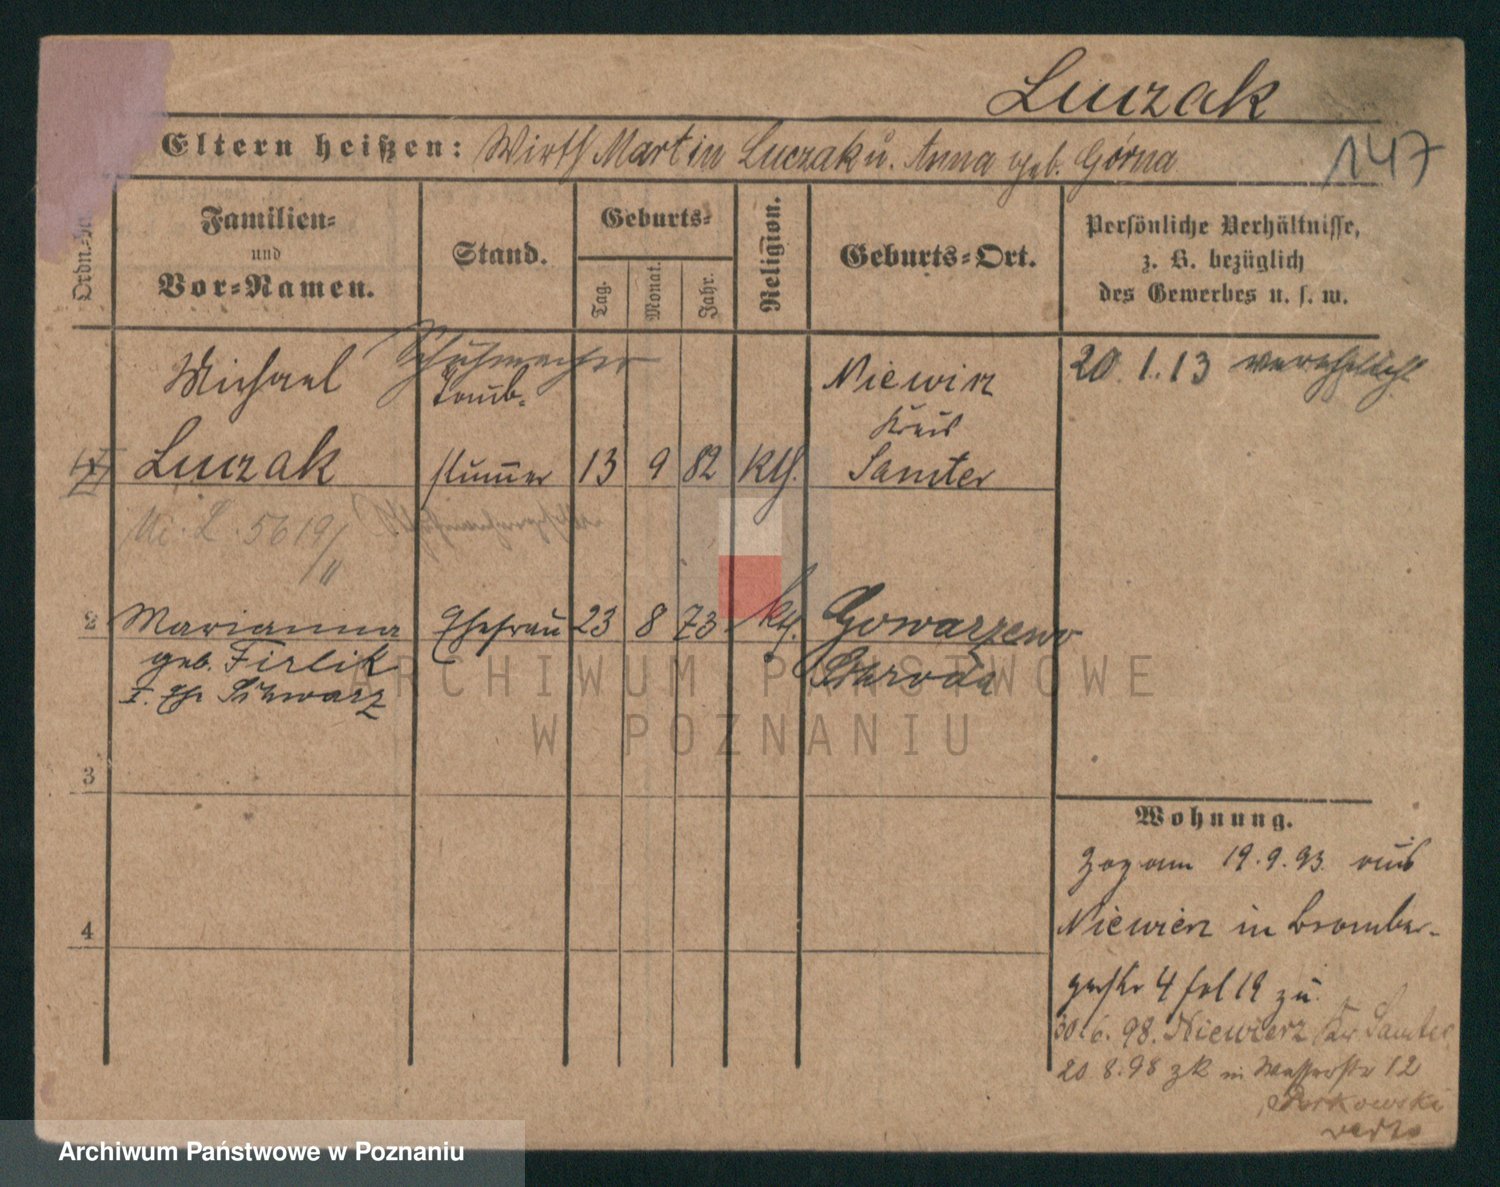 Luczak
147
Eltern heißen: Wirth Martin Luczak u. Anna geb. Górna
Ordn.-Nr.
Familien-
und
Vor-Namen.
Stand.
Geburts-
Tag.
Monat.
Jahr.
Religion.
Geburts-Ort.
Persönliche Verhältnisse,
z. B. bezüglich
des Gewerbes u. s. w.
Schuhmacher
Michael
Taub-
Niewirz
20. 1. 13 verehelicht
Kreis
Luczak
stummer
13 9 82 kth.
Samter
5619
2 Marianna
Ehefrau
23 8 73 kth.
Gowarzewo
geb. Firlik
Schroda
I. Eh. Schwarz
ARCHIWUM PAŃSTWOWE
W POZNANIU
3
4
Wohnung.
Zog am 19. 9. 93. aus
Niewierz in Bromber-
gerstr 4 fol 19 zu.
30. 6. 98. Niewierz Kr Samter
20. 8. 98 zk in Wasserstr 12
Archiwum Państwowe w Poznaniu